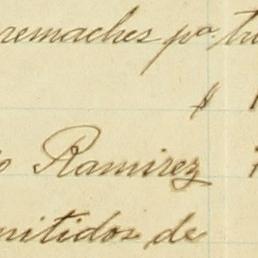 remaches pª
$
Ramirez
mitidos de